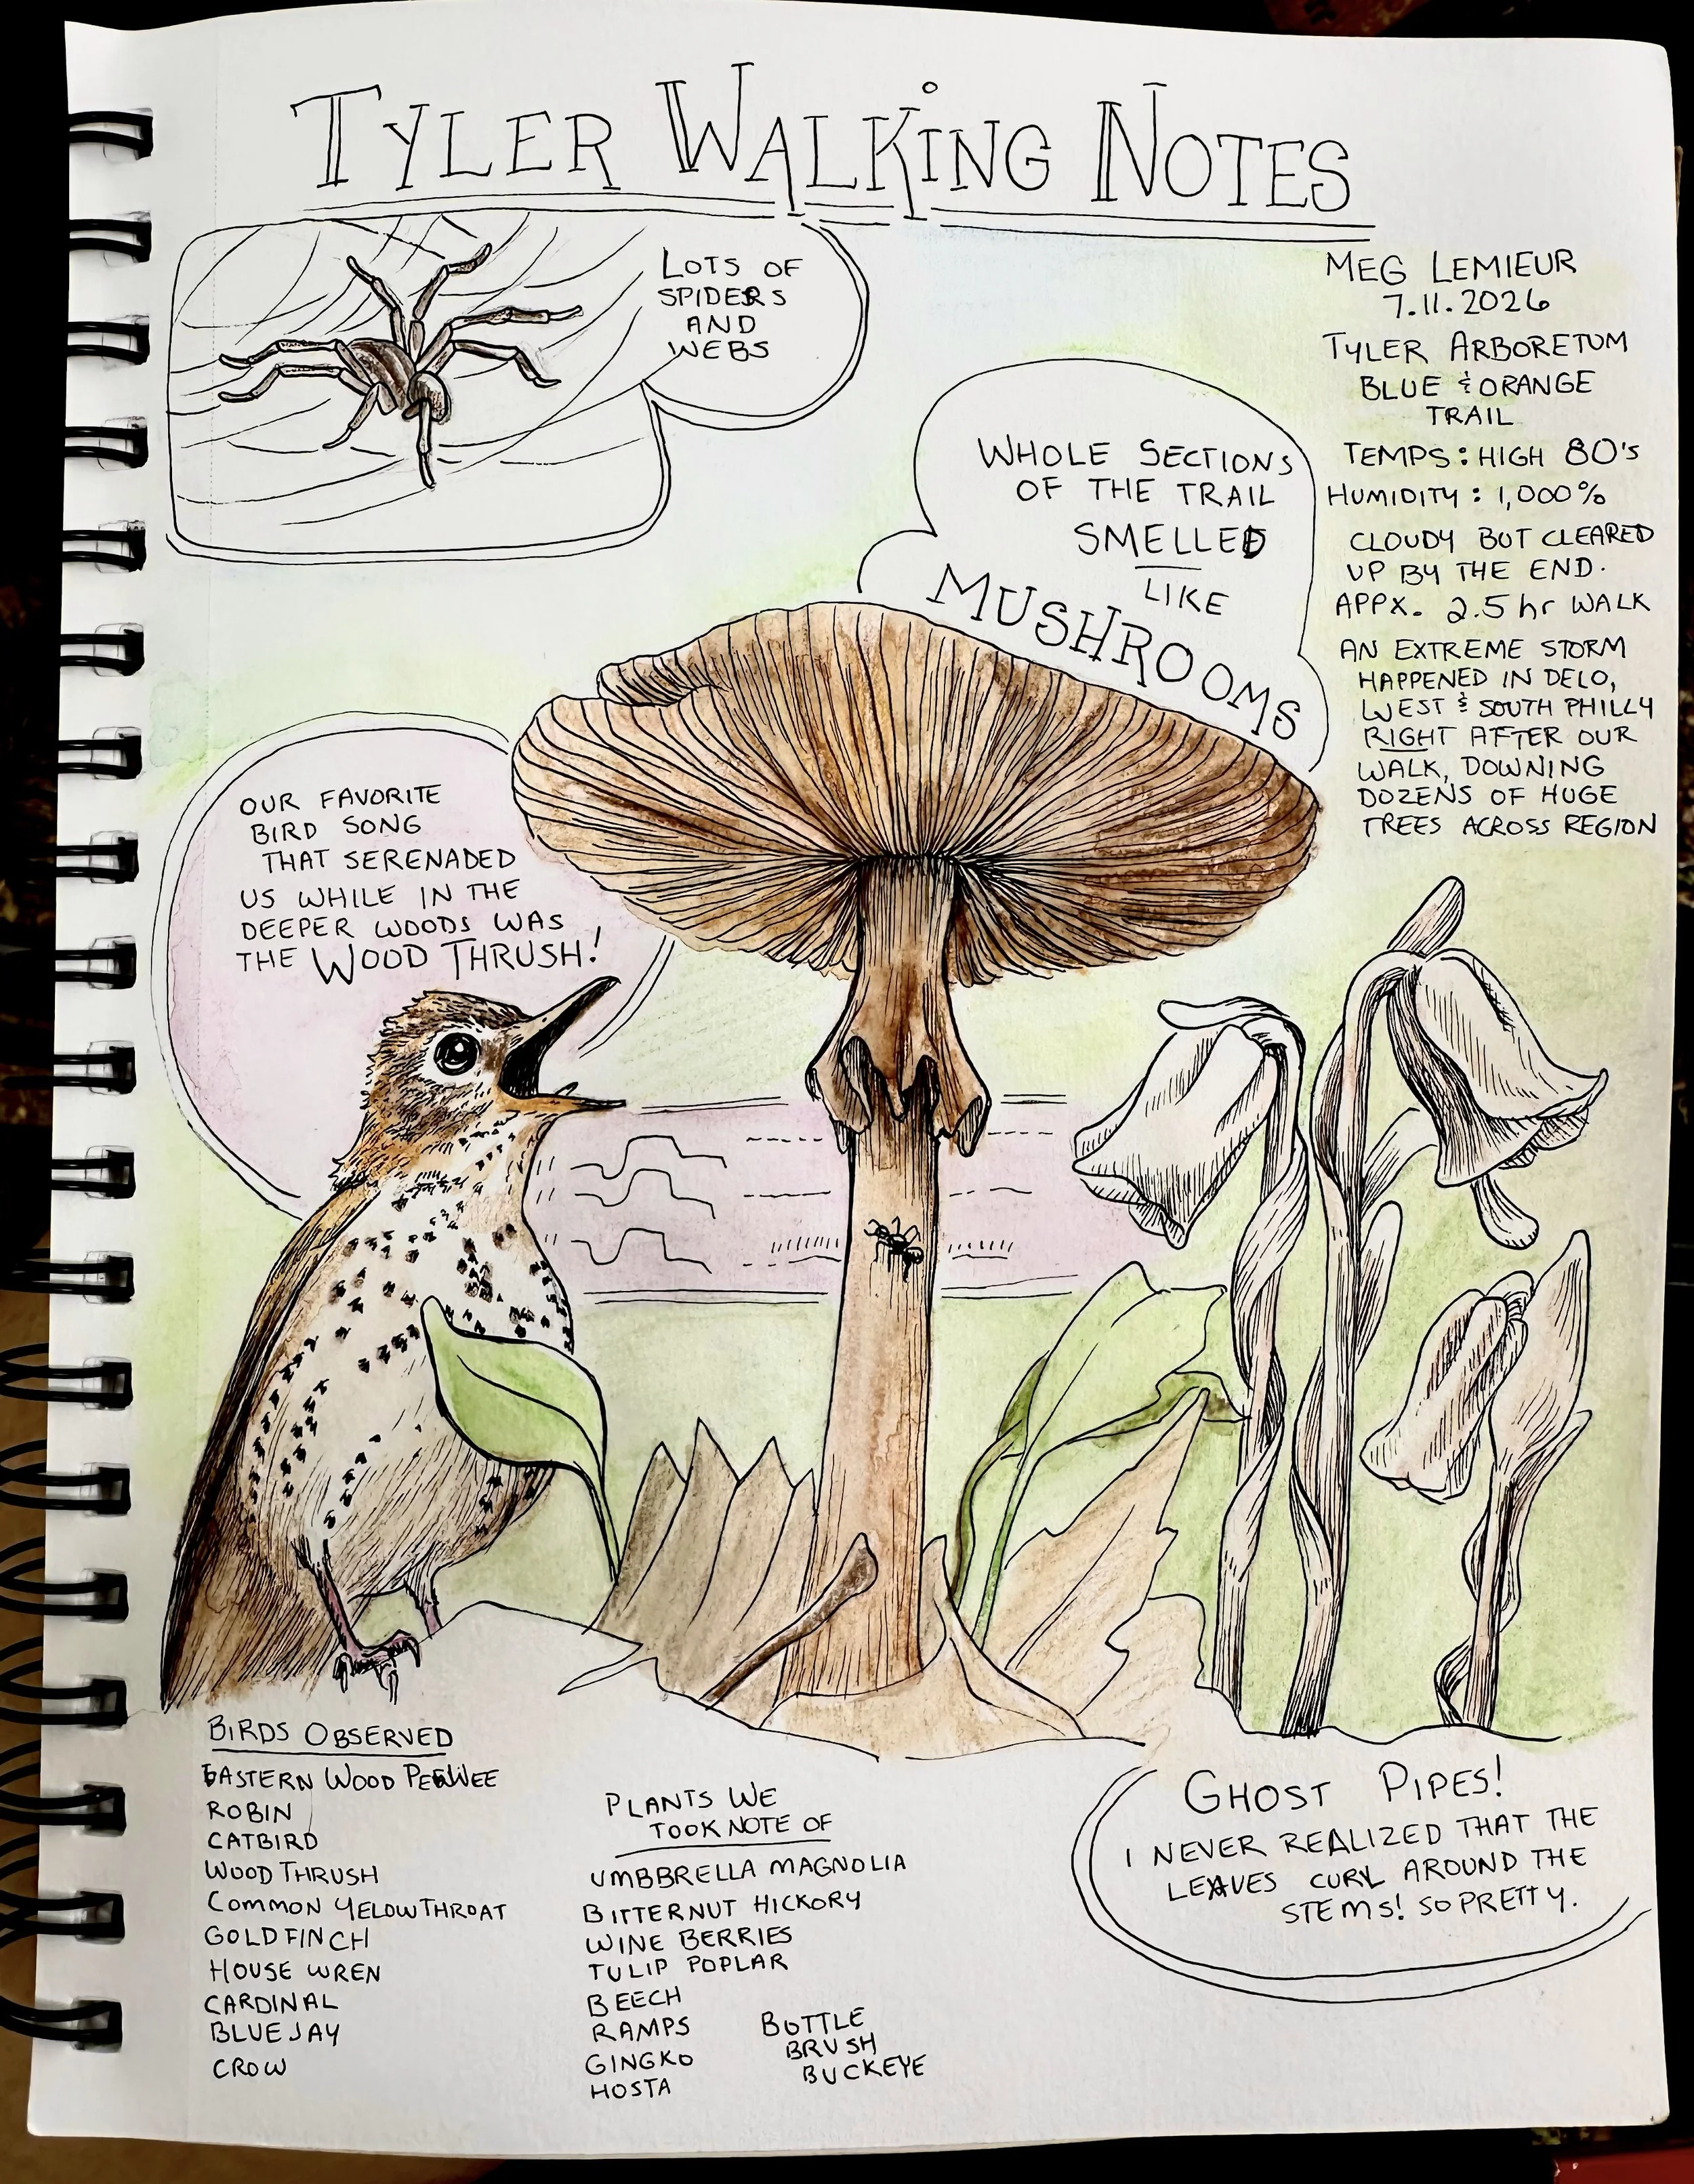 TYLER WALKING NOTES
LOTS OF
SPIDERS
AND
WEBS
MEG LEMIEUR
7.11.2026
TYLER ARBORETUM
BLUE & ORANGE
TRAIL
TEMPS: HIGH 80's
HUMIDITY: 1,000%
CLOUDY BUT CLEARED
UP BY THE END.
APPX. 2.5 hr WALK
AN EXTREME STORM
HAPPENED IN DELO,
WEST & SOUTH PHILLY
RIGHT AFTER OUR
WALK, DOWNING
DOZENS OF HUGE
TREES ACROSS REGION
WHOLE SECTIONS
OF THE TRAIL
SMELLED
LIKE
MUSHROOMS
OUR FAVORITE
BIRD SONG
THAT SERENADED
US WHILE IN THE
DEEPER WOODS WAS
THE WOOD THRUSH!
BIRDS OBSERVED
EASTERN WOOD PEEWEE
ROBIN
CATBIRD
WOOD THRUSH
COMMON YELOWTHROAT
GOLDFINCH
HOUSE WREN
CARDINAL
BLUE JAY
CROW
PLANTS WE
TOOK NOTE OF
UMBBRELLA MAGNOLIA
BITTERNUT HICKORY
WINE BERRIES
TULIP POPLAR
BEECH
RAMPS
GINGKO
HOSTA
BOTTLE
BRUSH
BUCKEYE
GHOST PIPES!
I NEVER REALIZED THAT THE
LEAVES CURL AROUND THE
STEMS! SO PRETTY.